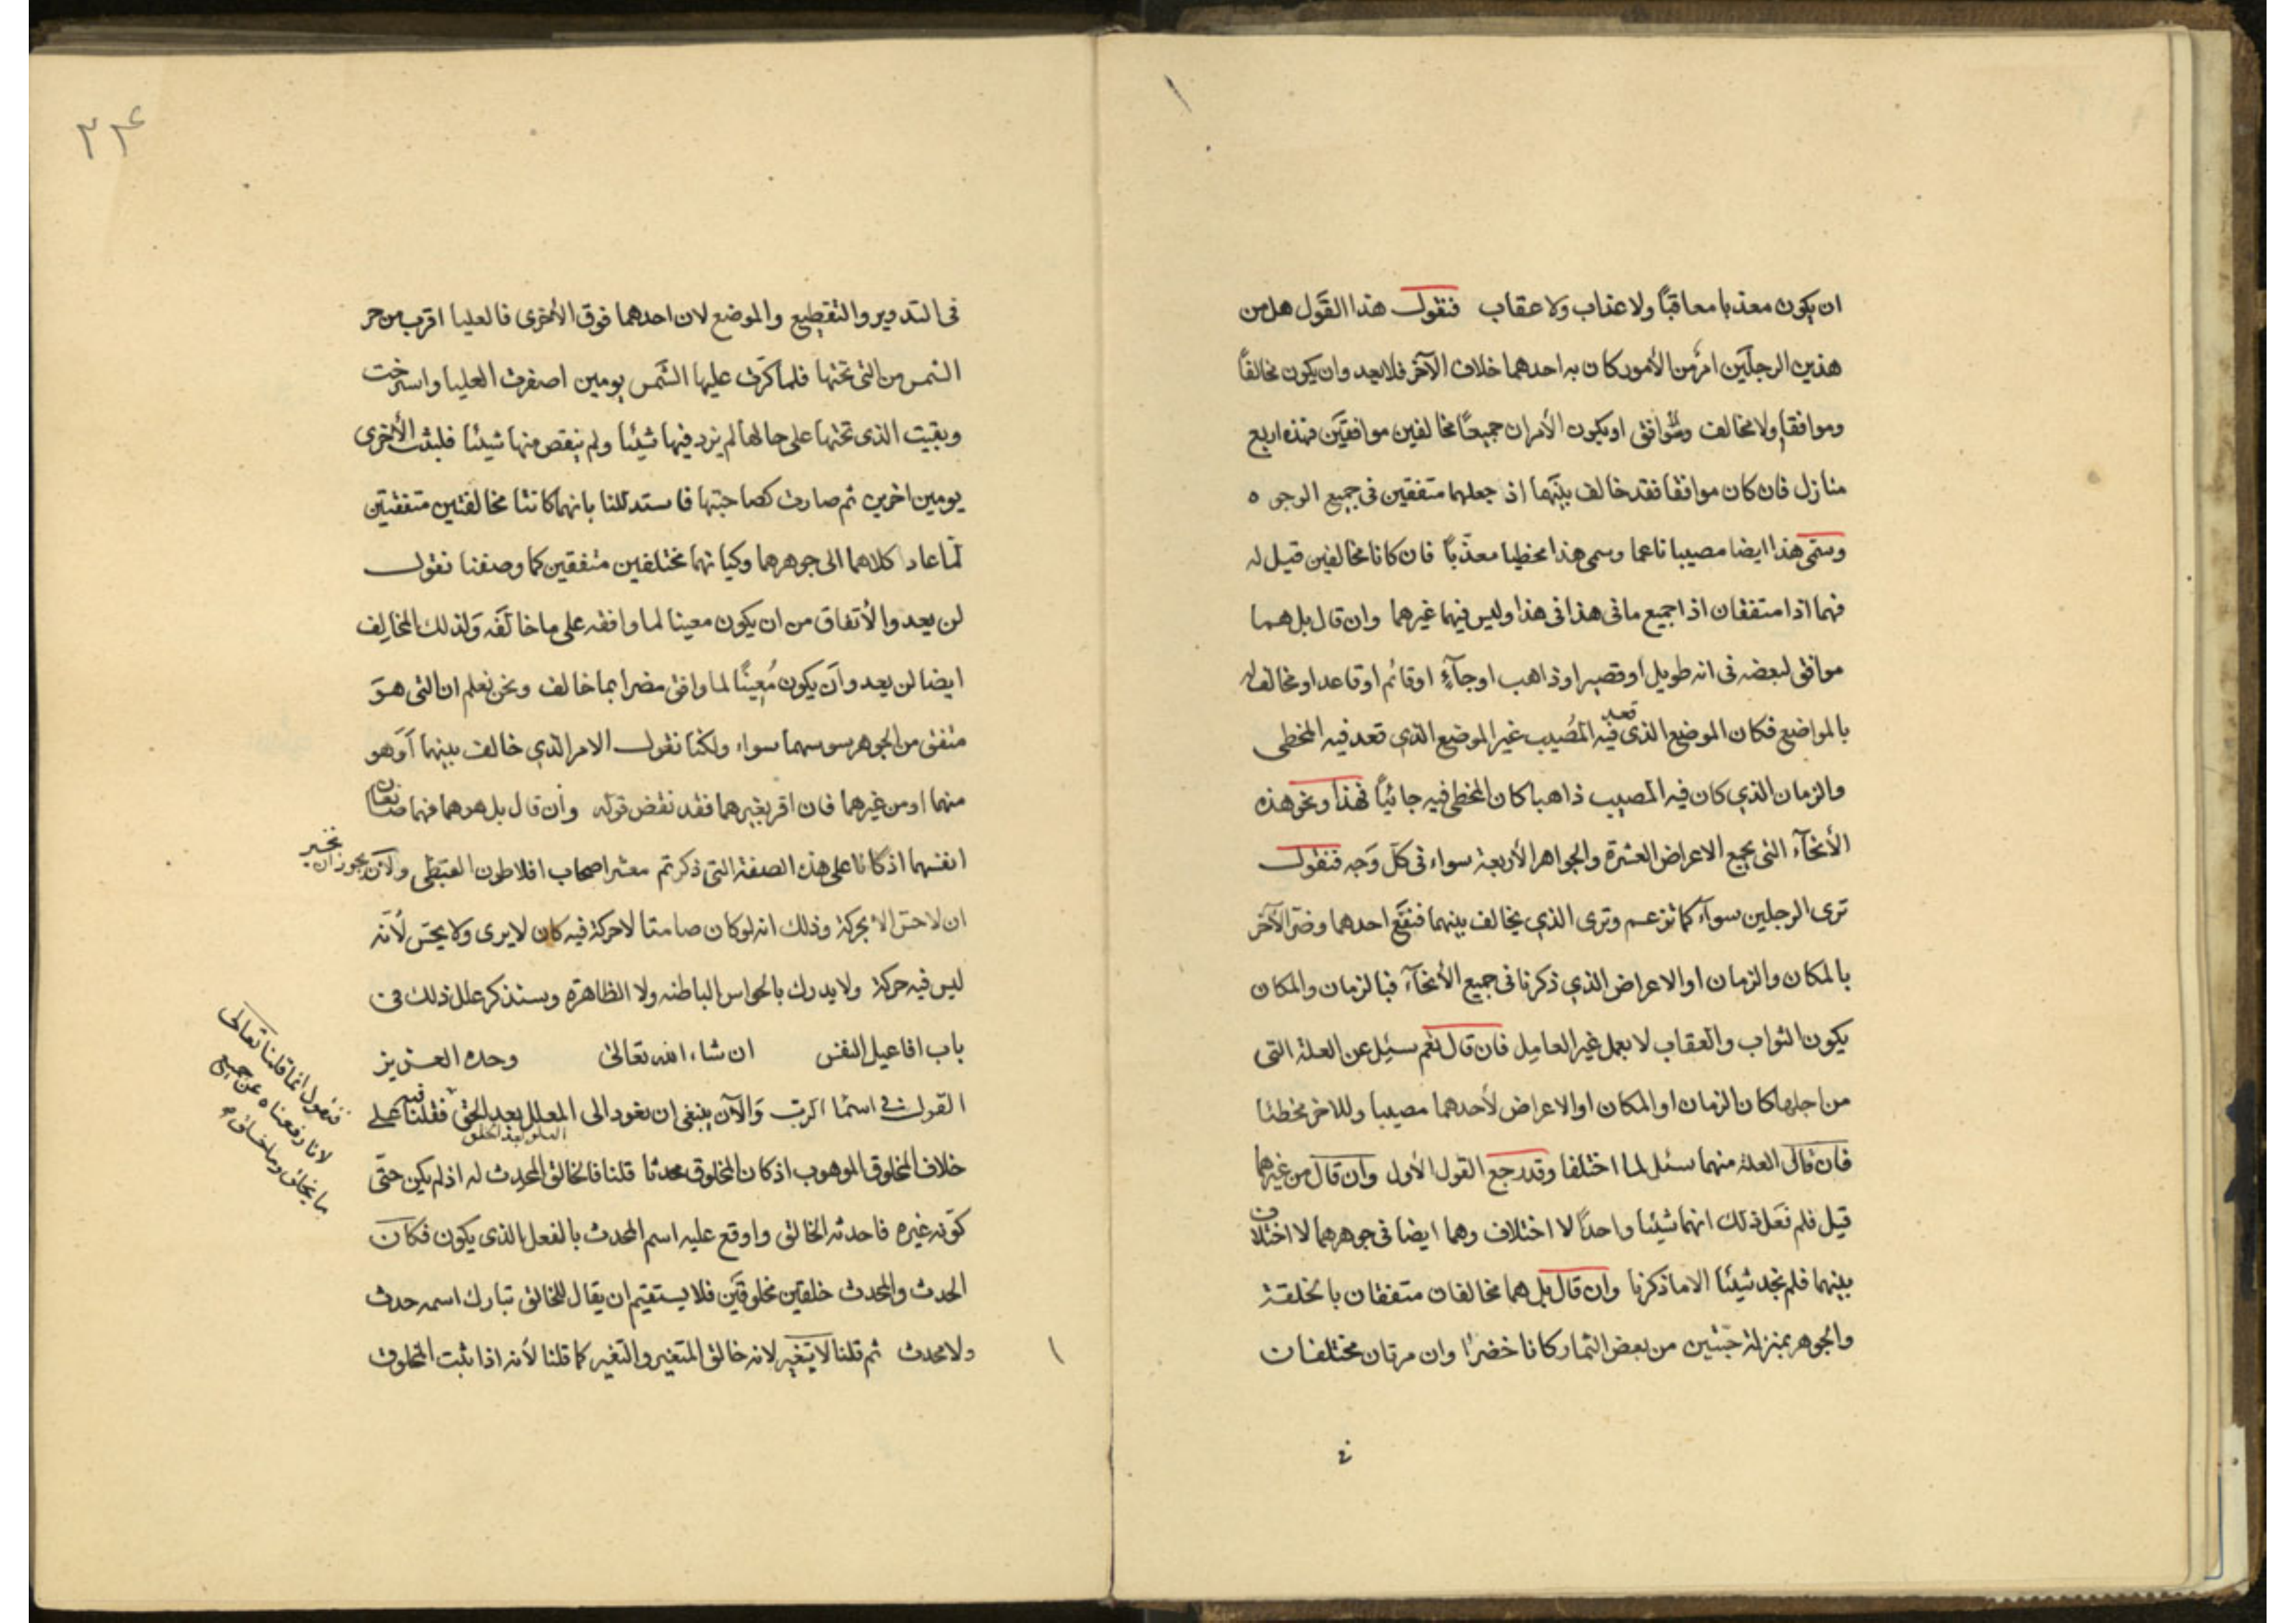 ان يكون معذبا معاقبًا ولا عذاب ولا عقاب فنقول هذا القول هل من
هذين الرجلين امر من الأمور كان به احدهما خلاف الآخر فلا يعد وان يكون مخالفًا
وموافقا ولا مخالف ولا موافق او يكون الأمران جميعًا مخالفين موافقين فهذه اربع
منازل فان كان موافقا فقد خالف بينهما اذ جعلهما متفقين فى جميع الوجوه
وسمّى هذا ايضا مصيبا ناعما وسمى هذا مخطيا معذّبًا فان كانا مخالفين قيل له
فهما اذا متفقان اذ اجميع مافى هذا فى هذا وليس فيهما غيرهما وان قال بل هما
موافق لبعضه فى انه طويل او قصير او ذاهب او جآءٍ او قائم او قاعد او مخالف له
بالمواضع فكان الموضع الذى قعد فيه المصُيب غير الموضع الذي قعد فيه المخطى
والزمان الذي كان فيه المصيب ذاهبا كان المخطى فيه جائيًا فهذا ونحو هذه
الأنحآء التى تجمع الاعراض العشرة والجواهر الأربعة سواء فى كلّ وَجه فنقول
ترى الرجلين سوآء كما تزعم وترى الذي يخالف بينهما فنفع احدهما وضرّ الآخر
بالمكان والزمان او الاعراض الذي ذكرنا فى جميع الأنحآء فبالزمان والمكان
يكون الثواب والعقاب لا بعمل غير العامِل فان قال نعم سئِل عن العلة التى
من اجلها كان الزمان او المكان او الاعراض لأحدهما مصيبا وللاخر مخطئا
فان قال العلة منهما سئل لما اختلفا وقد رجع القول الأول وان قال من غيرهما
قيل فلم نعَل ذلك انهما شيئا واحدًا لا اختلاف وهما ايضا فى جوهرهما لا اختلاف
بينهما فلم نجد شيئا الا ما ذكرنا وان قال بل هما مخالفان متفقان بالخلقة
والجوهر بمنزلة حبّتين من بعض الثمار كانا خضرًا وان مرتان مختلفات
فى
٢٣٤
فى التدوير والتقطيع والموضع لان احدهما فوق الأخرى فالعليا اقرب من حر
الشمس من التى تحتها فلما كرّت عليها الشمس يومين اصفرت العليا واسترخت
وبقيت الذى تحتها على حالها لم يزد فيها شيئا ولم ينقص منها شيئا فلبثت الأخرى
يومين اخرين ثم صارت كصاحبتها فاستدللنا بانهما كانتا مخالفتين متفقتين
لمّا عاد كلاهما الى جوهرهما وكيانهما مختلفين متفقين كما وصفنا نقول
لن يعدوا الأتفاق من ان يكون معينا لما وافقه على ما خالَفَه وَلذلك المخالِف
ايضا لن يعد وأن يكون مُعينًا لما وافق مضرا بما خالف ونحن نعلم ان التى هوَ
متفق من الجوهر سوسهما سواء ولكنا نقول الامر الذي خالف بينهما أوَهو
منهما او من غيرهما فان اقر بغيرهما فقد نقض قوله وأن قال بل هو هما فهما
انفسهما اذ كانا على هذه الصفة التى ذكرتم معشر اصحاب افلاطون القبطى ولأن يجوز ان نخبر
ان لا حسّ الا بحركة وذلك انه لو كان صامتا لا حركة فيه كان لا يرى ولا يحسّ لأنّه
ليس فيه حركة ولا يدرك بالحواس الباطنه ولا الظاهرة وسنذكر علل ذلك فى
باب افاعيل النفس ان شاء الله تعالى وحده العزيز
القول فى اسماء الرب وَالآن ينبغى ان نعود الى المعلل بعد الحق فقلنا فيه على
خلاف المخلوق الموهوب اذ كان المخلوق محدثا قلنا فالخالق المحدِث له اذ لم يكن حتّى
كوّنه غيره فاحدثه الخالق واوقع عليه اسم المحدث بالفعل الذى يكون فكان
الحدث والمحدث خلقين مخلوقَين فلا يستقيم ان يقال للخالق تبارك اسمه حدث
ولا محدث ثم قلنا لا يتغير لانه خالق المتغير والتغير كما قلنا لأنه اذا ثبت المخلوق
فنقول انما قلنا تعالى
لانا رفعناه عن جميع